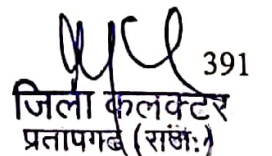 391
जिला कलक्टर
प्रतापगढ़ (राज.)